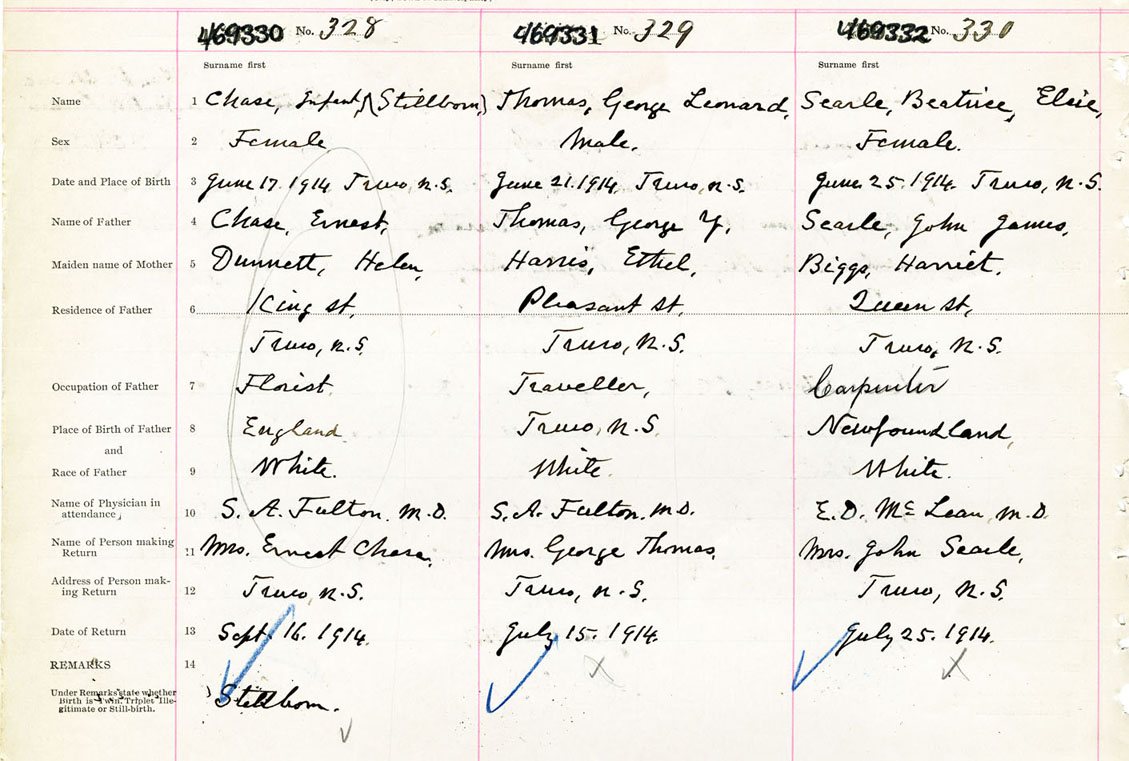 469330 No. 328 469331 No. 329 469332 No. 330
Surname first Surname first Surname first
Name 1 Chase, Infant, (Stillborn) Thomas, George Leonard, Searle, Beatrice, Elsie,
Sex 2 Female Male. Female.
Date and Place of Birth 3 June 17. 1914, Truro, N.S. June 21. 1914, Truro, N.S. June 25. 1914. Truro, N.S.
Name of Father 4 Chase, Ernest, Thomas, George Y, Searle, John James,
Maiden name of Mother 5 Dunnett, Helen, Harris, Ethel, Biggs, Harriet.
Residence of Father 6 King St, Pleasant St, Queen St,
Truro, N.S. Truro, N.S. Truro, N.S.
Occupation of Father 7 Florist. Traveller, Carpenter
Place of Birth of Father 8 England Truro, N.S. Newfoundland,
and
Race of Father 9 White. White. White.
Name of Physician in
attendance, 10 S. A. Fulton, M.D. S. A. Fulton. M.D. E. D. McLean, M.D.
Name of Person making
Return 11 Mrs. Ernest Chase, Mrs. George Thomas, Mrs. John Searle,
Address of Person mak-
ing Return 12 Truro, N.S. Truro, N.S. Truro, N.S.
Date of Return 13 Sept. 16. 1914. July 15. 1914. July 25. 1914.
REMARKS 14
Under Remarks state whether
Birth is Twin. Triplet Ille-
gitimate or Still-birth.
Stillborn.